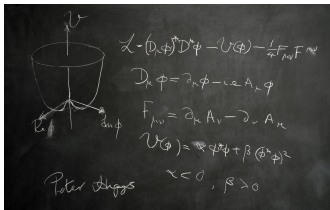 V
ℒ = (D_μ φ)* D^μ φ − V(φ) − ¼ F_μν F^μν
D_μ φ = ∂_μ φ − ieA_μ φ
F_μν = ∂_μ A_ν − ∂_ν A_μ
V(φ) = α φ*φ + β (φ*φ)²
α < 0, β > 0
Re φ
Im φ
Peter Higgs